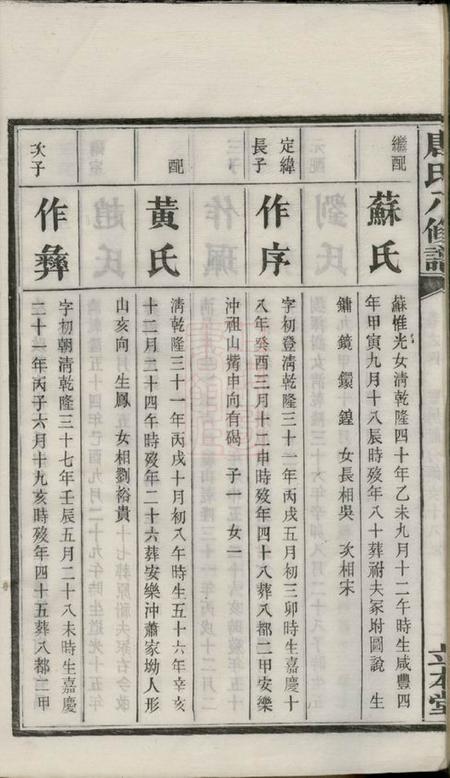 氏六修譜
立本堂
繼配
蘇氏
蘇惟光女清乾隆四十年乙未九月十二午時生咸豐四
年甲寅九月十八辰時歿年八十葬祔夫冢坿圖說 生
鏞 鏡 鐶 鍠 女長相吳 次相宋
定緯
長子
作序
字初登清乾隆三十一年丙戌五月初三卯時生嘉慶十
八年癸酉三月十二申時歿年四十八葬八都二甲安樂
沖祖山觜申向有碣 子一 女一
配
黃氏
清乾隆三十一年丙戌十月初八午時生五十六年辛亥
十二月二十四午時歿年二十六葬安樂沖蕭家坳人形
山亥向 生鳳 女相劉裕貴
次子
作彝
字初朝清乾隆三十七年壬辰五月二十八未時生嘉慶
二十一年丙子六月十九亥時歿年四十五葬八都二甲